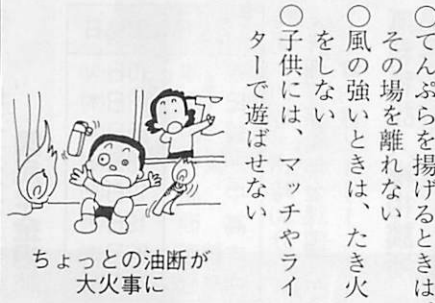 ○てんぷらを揚げるときは
その場を離れない
○風の強いときは、たき火
をしない
○子供には、マッチやライ
ターで遊ばせない
ちょっとの油断が
大火事に